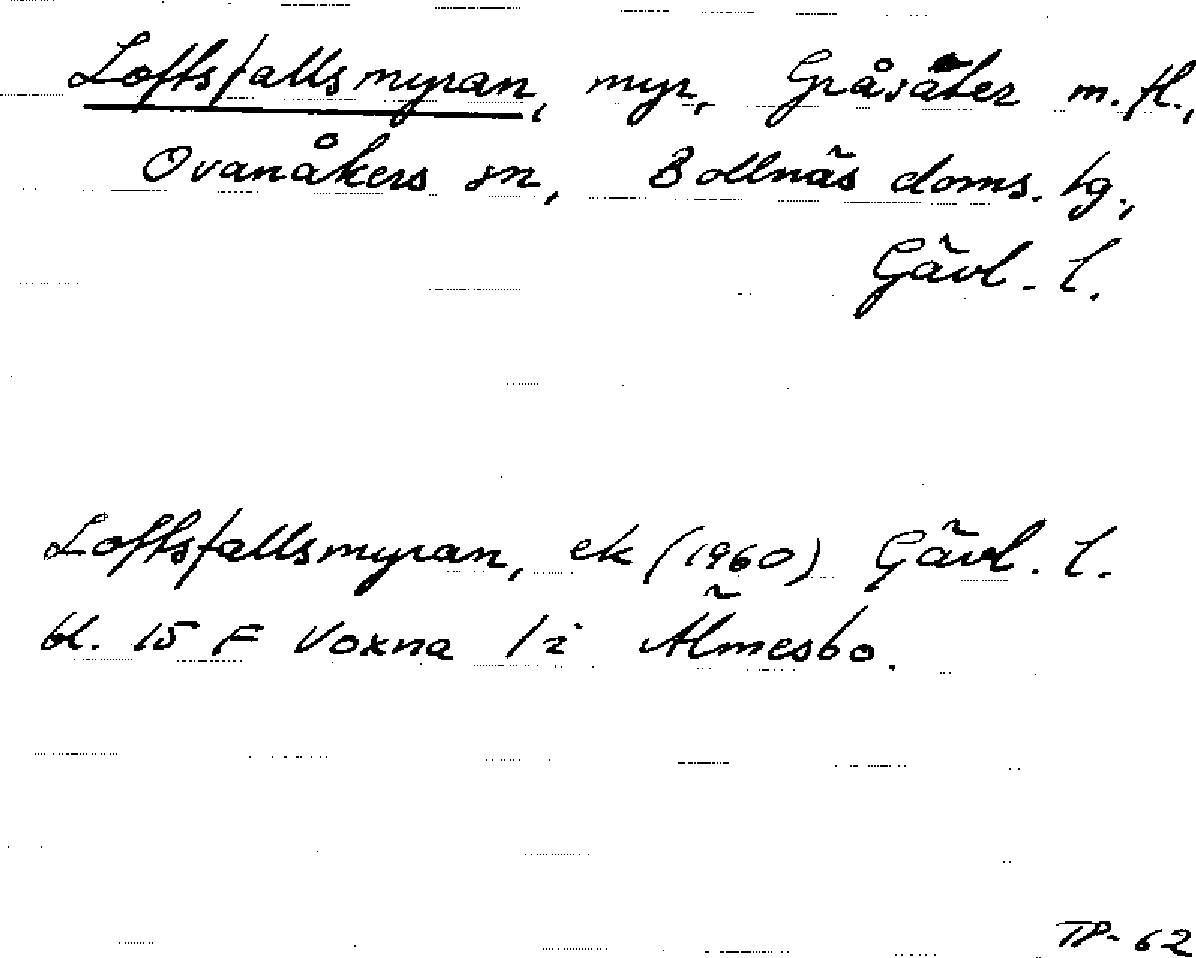 Loftsfallsmyran, myr, Gråsäter m.fl.,
Ovanåkers sn, Bollnäs doms. hg.,
Gävl. l.
Loftsfallsmyran, ek (1960) Gävl. l.
bl. 15 F Voxna /i Älmesbo.
TP-62